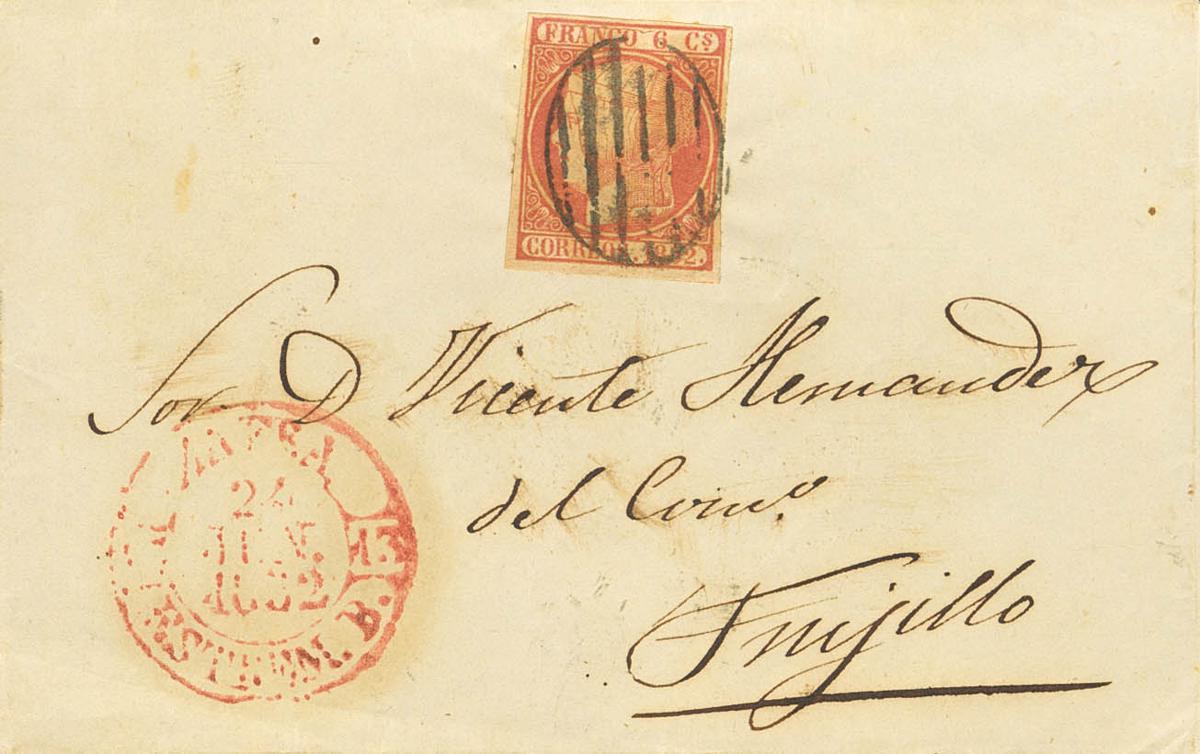 FRANCO 6 Cs
CORREOS. 1852.
Sor D Vicente Hernandez
del Como.
Trujillo
ZAFRA
24
JUN.
1852
ESTREM. B.